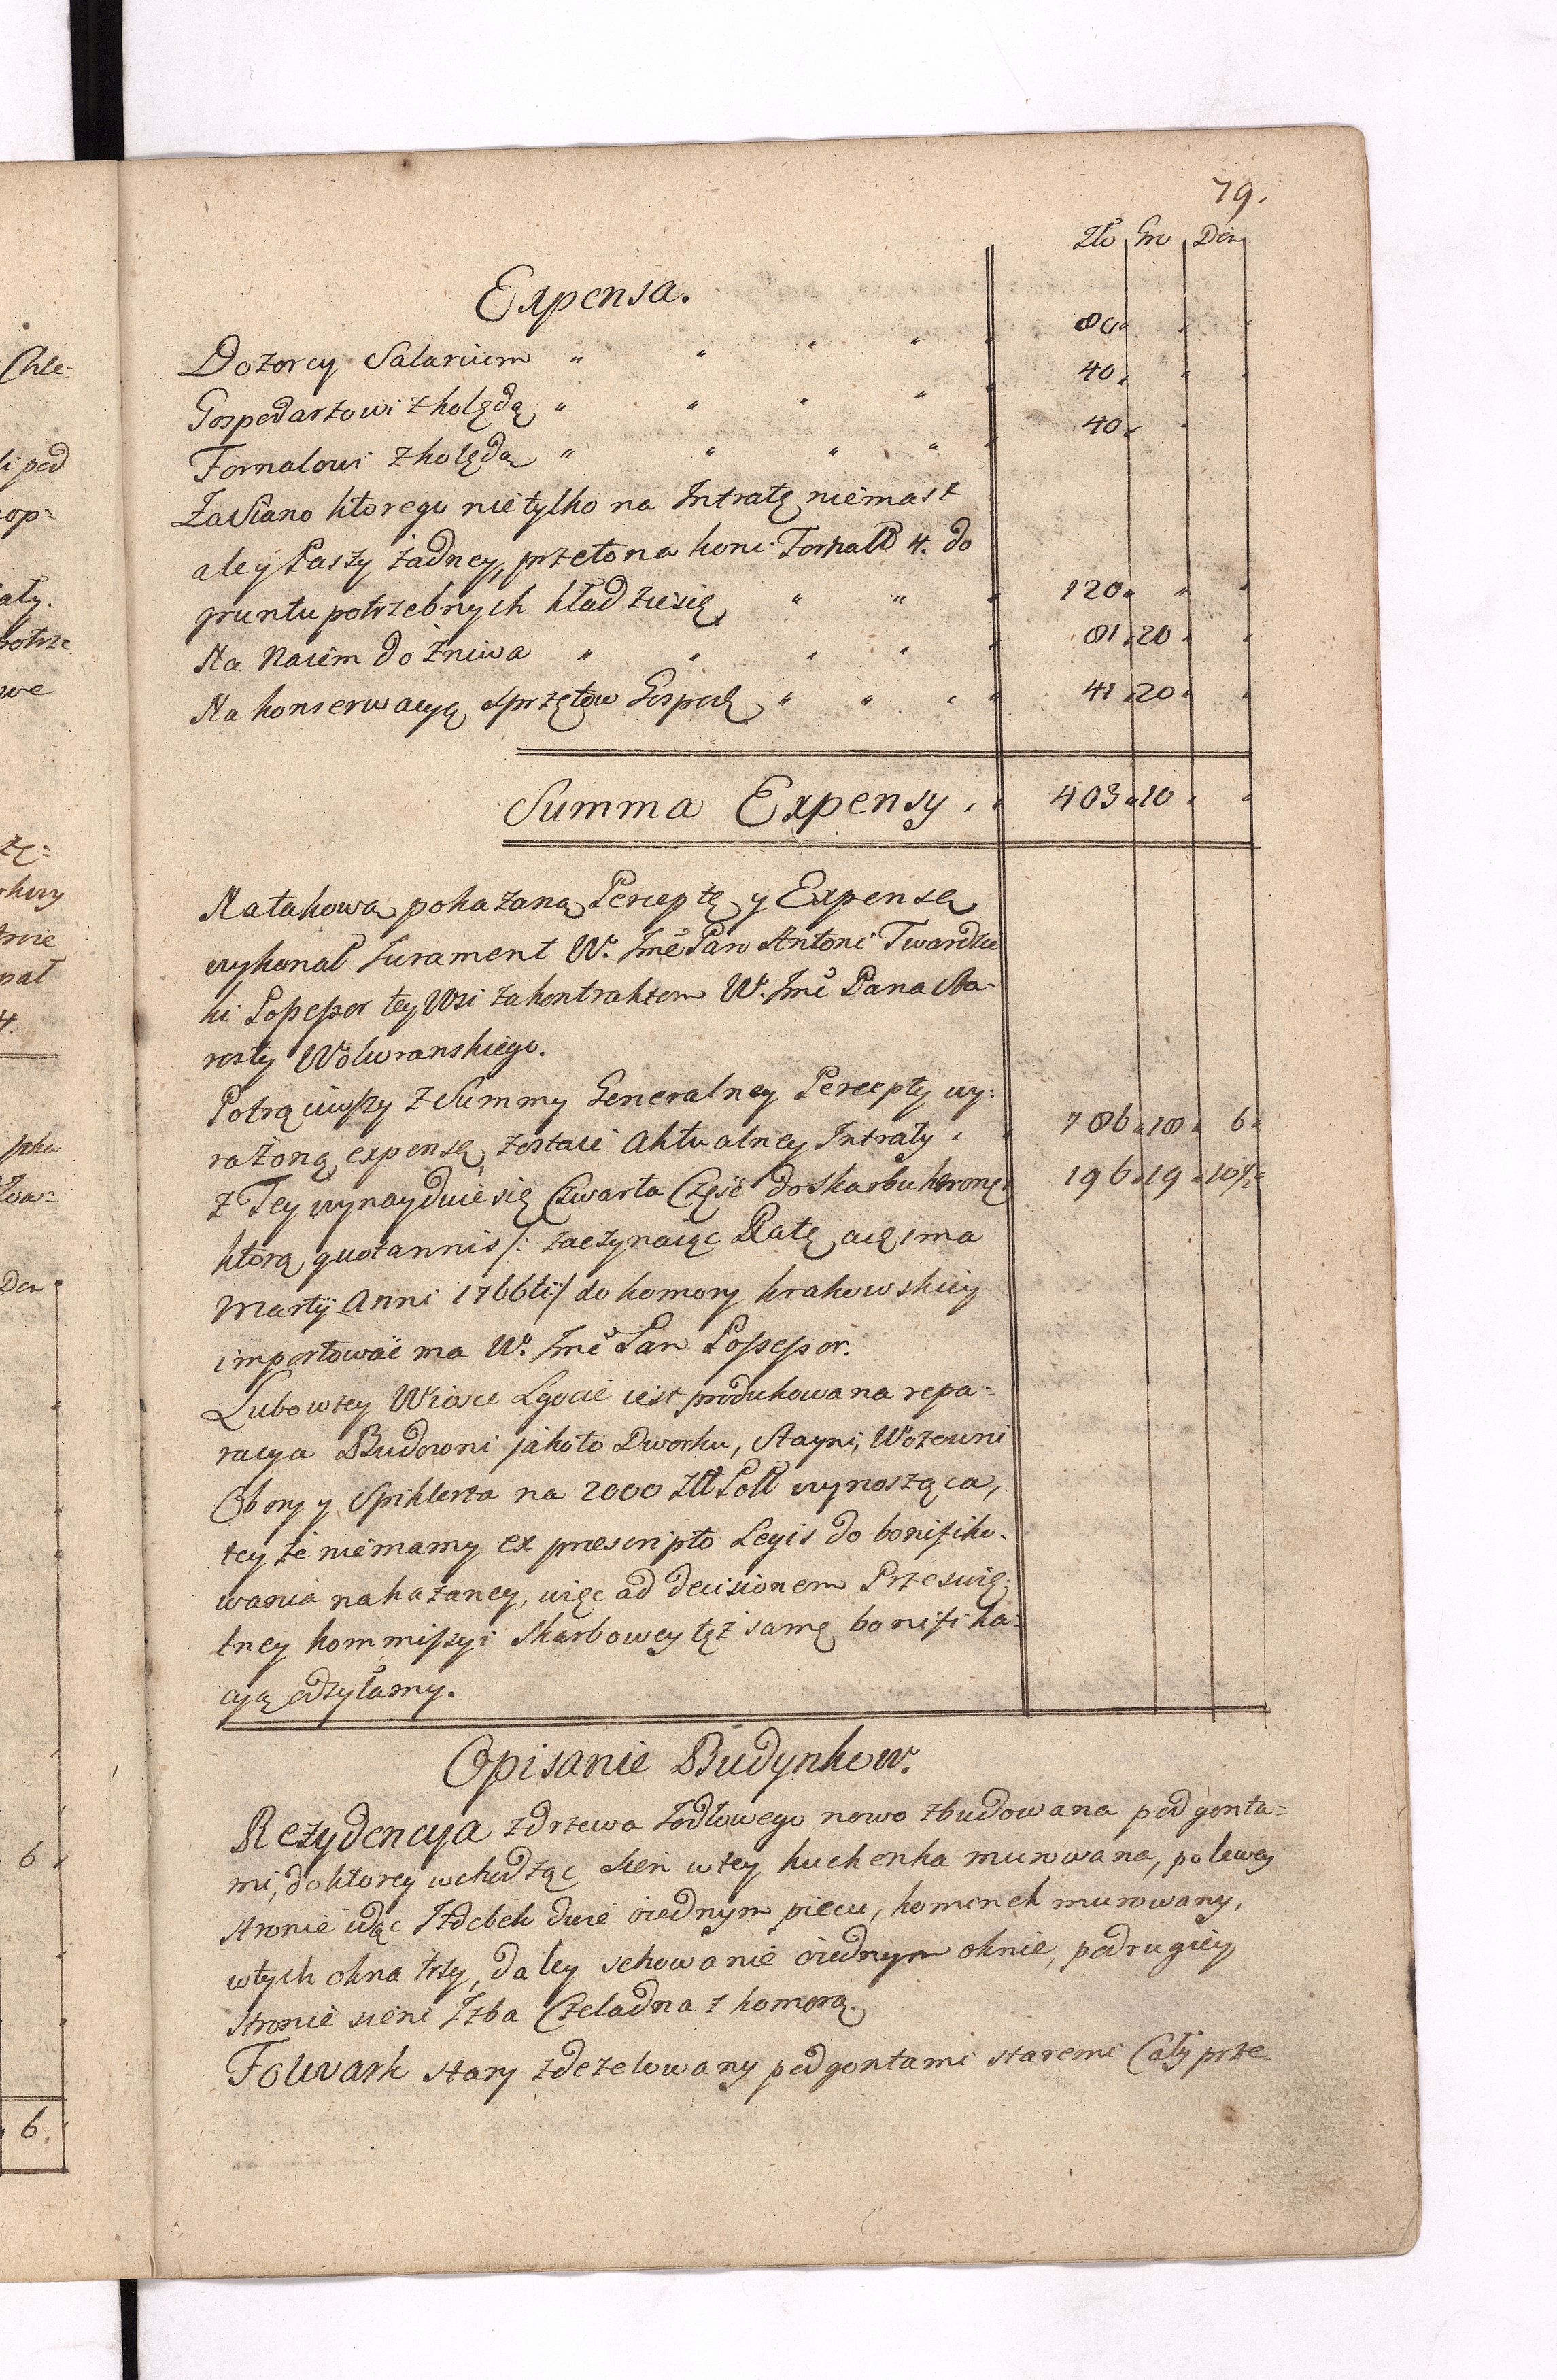 79.
Zło Gro Den
Expensa.
Dozorcy Salarium " " " " " 80 " "
Gospodarzowi z kolędą " " " " " 40 " "
Fornalowi z kolędą " " " " " 40 "
Za Siano ktorego nie tylko na Intratę niemasz
ale y Paszy żadney, przeto na koni Fornall 4. do
gruntu potrzebnych kładzie się " " " 120 " "
Na Naiem do Żniwa " " " " " 81 20 "
Na konserwacyą Sprzętow Gospod " " " " 41 20 "
Summa Expensy " " 403 10 " "
Na takową pokazaną Perceptę y Expensę
wykonał Jurament W. Jmć Pan Antoni Twardzic
ki Possessor tey Wsi za kontraktem W. Jmć Pana Sta-
rosty Wolwramskiego.
Potrąciwszy z Summy Generalney Percepty wy-
rażoną expensę, zostaie Aktualney Intraty " " 786 18 6
z Tey wynayduie się Czwarta Część do Skarbu koronn 196 19 10½
ktorą quotannis /: zaczynaiąc Ratę a 1ma
Martij Anni 1766ti :/ do komory krakowskiey
importować ma W. Jmć Pan Possessor.
Lubo w tey Wiosce Lgocie iest produkowana repa-
racya Budowni jako to Dworku, Stayni, Wozowni
Obory y Spiklerza na 2000 Złł Poll wynosząca,
tey że niemamy ex praescripto Legis do bonifiko-
wania nakazaney, więc ad decisionem Prześwię-
tney kommissyi Skarbowey tęż samę bonifika-
cyą odsyłamy.
Opisanie Budynkow.
Rezydencya z drzewa Jodłowego nowo zbudowana pod gonta-
mi, do ktorey wchodząc Sień w tey kuchenka murowana, po lewey
stronie idąc Izdebek dwie o iednym piecu, kominek murowany,
w tych okna trzy, daley schowanie o iednym oknie, po drugiey
stronie sieni Izba Czeladna z komorą.
Folwark stary zdezelowany pod gontami staremi Cały prze-
Chle-
li pod
op-
ały.
potrze
we
nał
4.
Den
6
6.